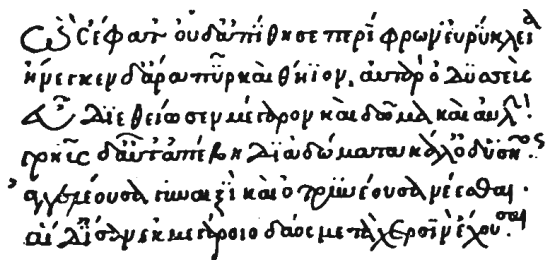 Ὣς ἔφατ' οὐδ' ἀπίθησε περίφρων εὐρύκλεια
ἤνεγκεν δ' ἄρα πῦρ καὶ θήϊον. αὐτὰρ ὀδυσσεὺς
εὖ διεθείωσεν μέγαρον καὶ δῶμα καὶ αὐλήν.
γρηῢς δ' αὖτ' ἀπέβη διὰ δώματα κάλ' ὀδυσῆος
ἀγγελέουσα γυναιξὶ καὶ ὀτρυνέουσα νέεσθαι.
αἱ δ' ἴσαν ἐκ μεγάροιο δάος μετὰ χερσὶν ἔχουσαι.